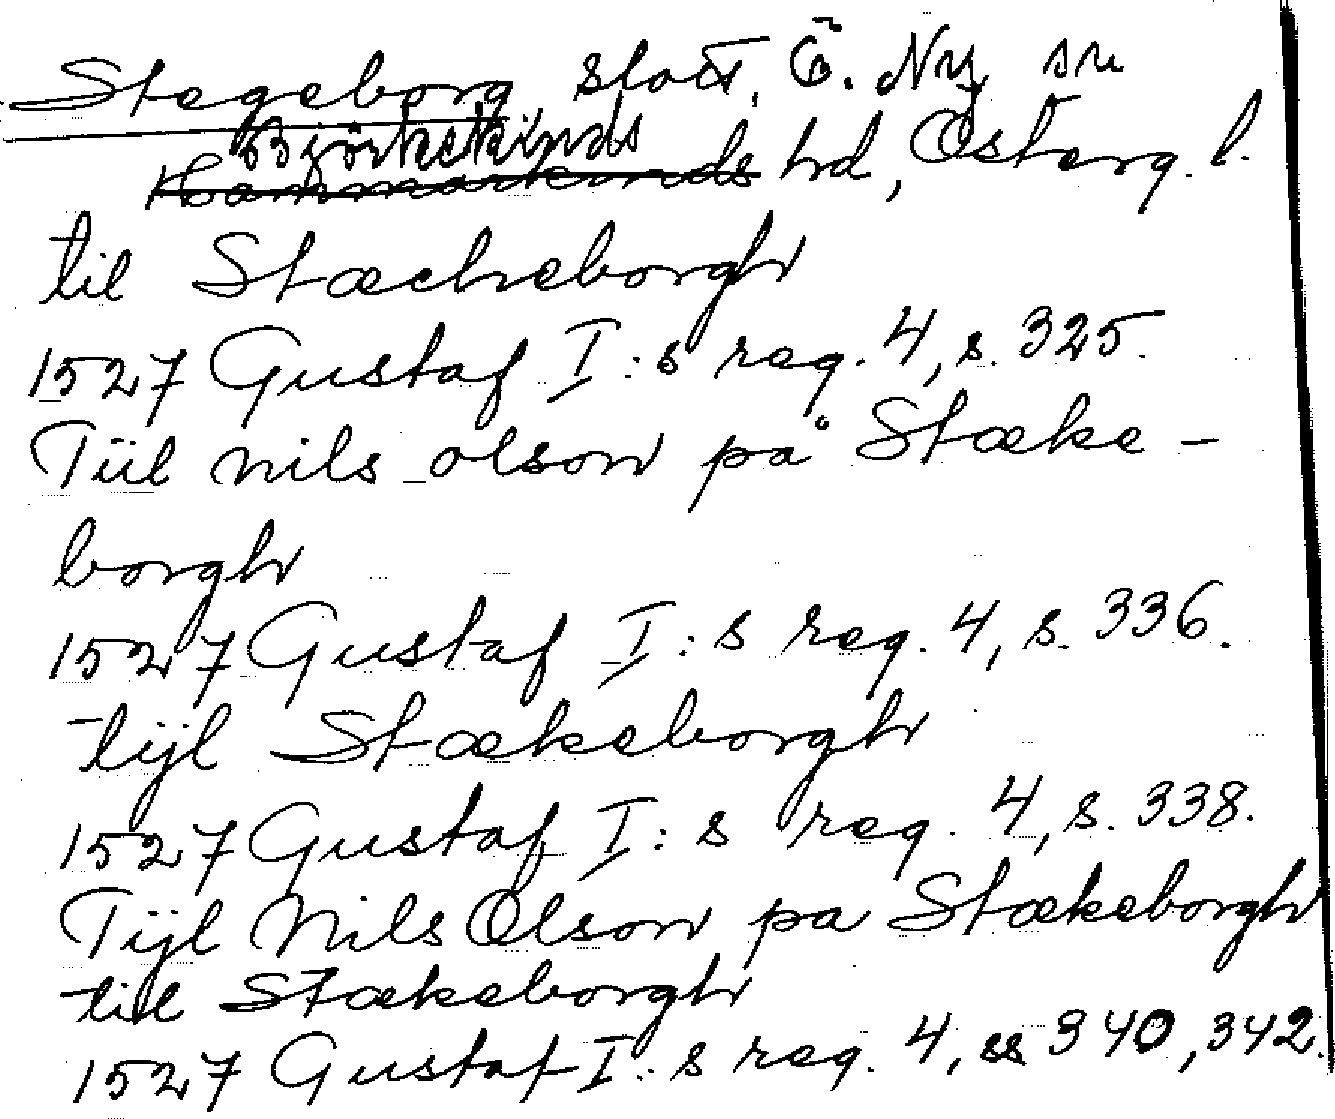 Stegeborg slott, Ö. Ny sn
Björkekinds
Hammarkinds hd, Österg. l.
til Stæcheborgh
1527 Gustaf I:s reg. 4, s. 325.
Tiil nils olson på Stæke-
borgh
1527 Gustaf I:s reg. 4, s. 336.
tijl Stækeborgh
1527 Gustaf I:s reg. 4, s. 338.
Tijl Nils Olson pa Stækeborgh
till Stækeborgh
1527 Gustaf I:s reg. 4, ss 340, 342.